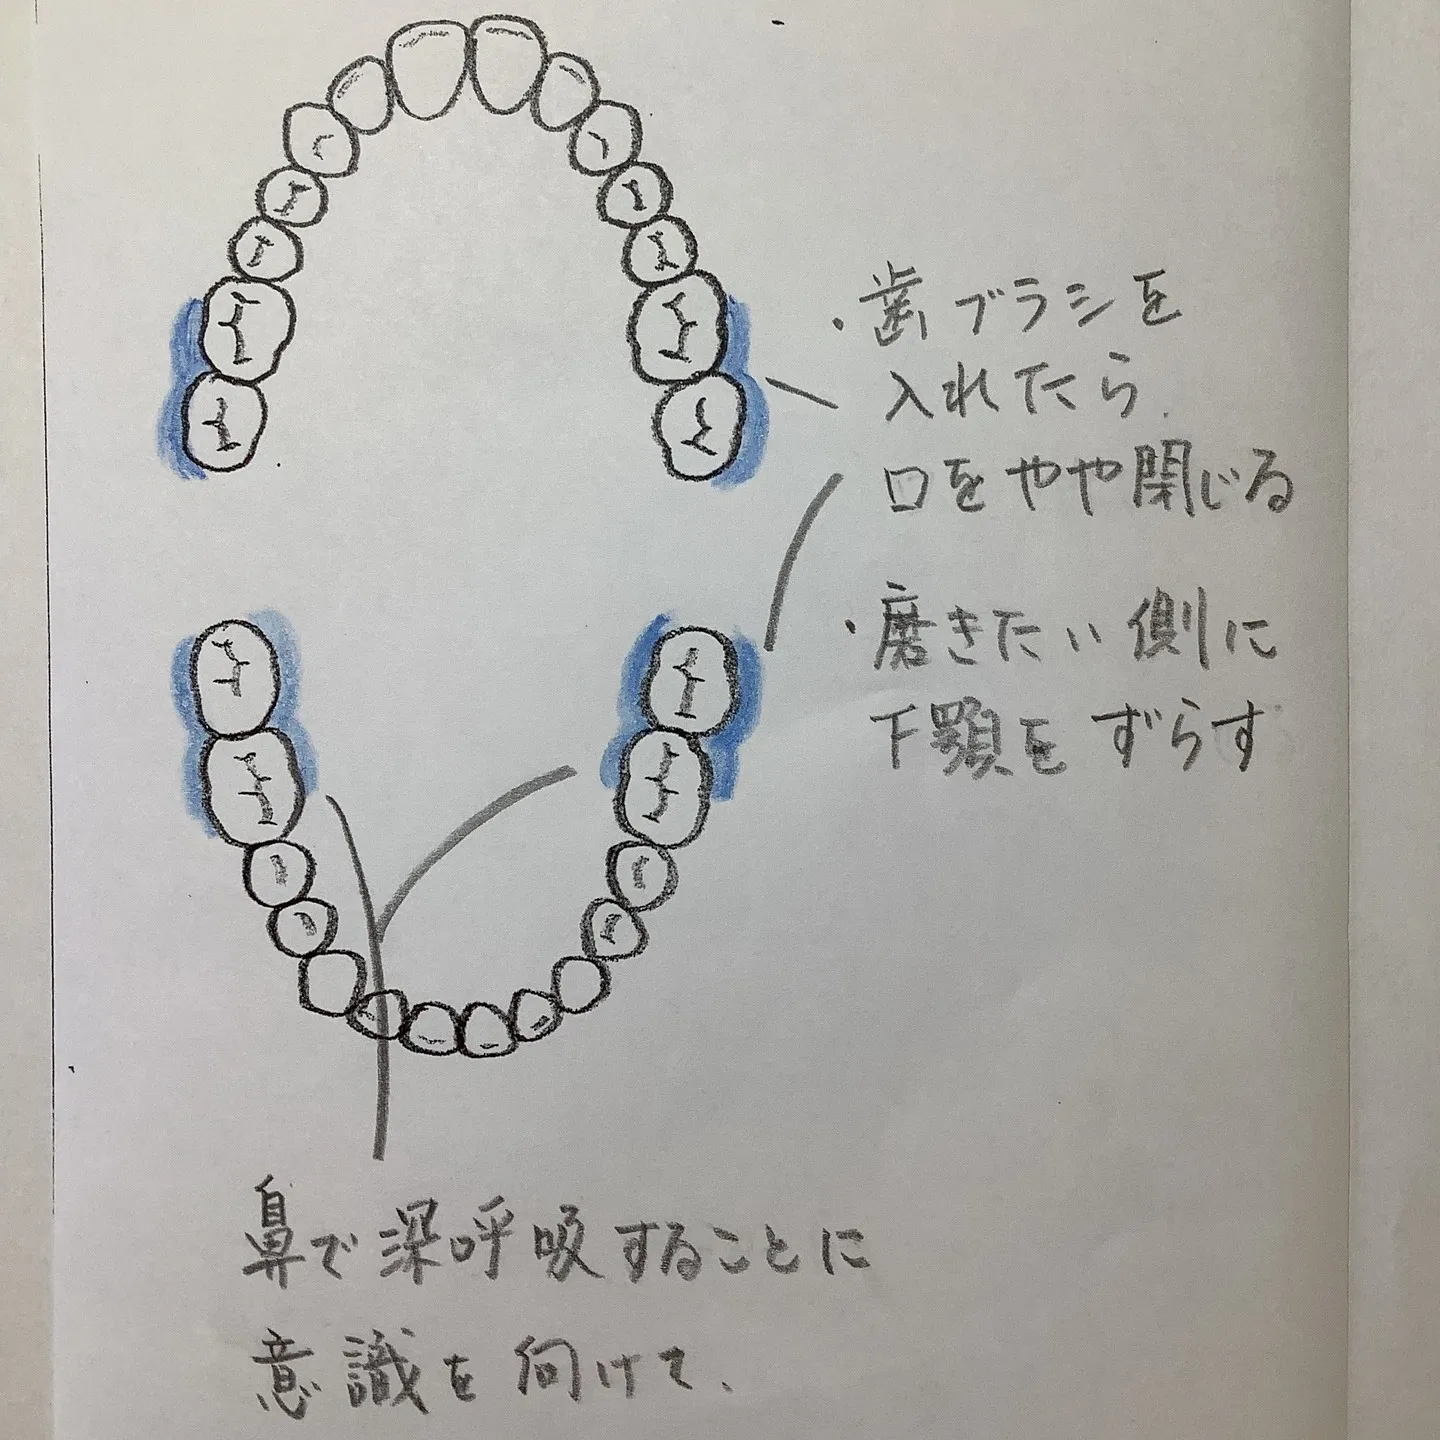 ・歯ブラシを
入れたら、
口をやや閉じる
・磨きたい側に
下顎をずらす
鼻で深呼吸することに
意識を向けて、